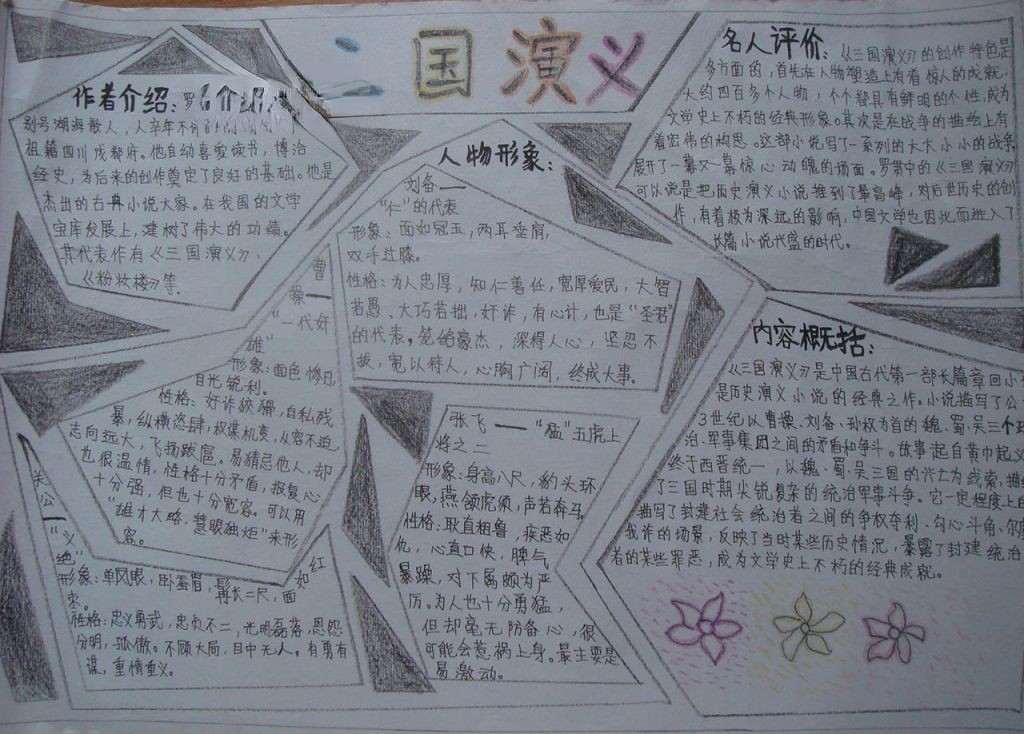 三国演义
作者介绍:
别号湖海散人,人卒年不
祖籍四川成都府。他自幼喜爱读书,博洽
经史,为后来的创作奠定了良好的基础。他是
杰出的古典小说大家。在我国的文学
宝库发展上,建树了伟大的功绩。
其代表作有《三国演义》、
《粉妆楼》等。
人物形象:
刘备——
“仁”的代表
形象:面如冠玉,两耳垂肩,
双手过膝。
性格:为人忠厚,知仁善任,宽厚爱民,大智
若愚、大巧若拙,奸诈,有心计,也是“圣君”
的代表,笼络豪杰,深得人心,坚忍不
拔,宽以待人,心胸广阔,终成大事。
曹
操——
“一代奸
雄”
形象:面色惨白,
目光锐利。
性格:奸诈狡猾,自私残
暴,纵横恣肆,权谋机变,从容不迫,
志向远大,飞扬跋扈。易猜忌他人,却
也很温情,性格十分矛盾,报复心
十分强,但也十分宽容。可以用
“雄才大略,慧眼独炬”来形
容。
张飞——“猛”五虎上
将之二
形象:身高八尺,豹头环
眼,燕颔虎须,声若奔马。
性格:耿直粗鲁,疾恶如
仇,心直口快,脾气
暴躁,对下属颇为严
厉。为人也十分勇猛,
但却毫无防备心,很
可能会惹祸上身。最主要是
易激动。
关
公——
“义
绝”
形象:单凤眼,卧蚕眉,髯长二尺,面如红
枣。
性格:忠义勇武,忠贞不二,光明磊落,恩怨
分明,孤傲。不顾大局,目中无人。有勇有
谋,重情重义。
名人评价:《三国演义》的创作特色是
多方面的,首先在人物塑造上有着惊人的成就,
大约四百多个人物,个个都具有鲜明的个性,成为
文学史上不朽的经典形象。其次是在战争的描绘上有
着宏伟的构思。这部小说写了一系列的大大小小的战争,
展开了一幕又一幕惊心动魄的场面。罗贯中的《三国演义》
可以说是把历史演义小说推到了最高峰,对后世历史的创
作,有着极为深远的影响,中国文学也因此而进入了
长篇小说兴盛的时代。
内容概括:
《三国演义》是中国古代第一部长篇章回小
是历史演义小说的经典之作。小说描写了公
3世纪以曹操、刘备、孙权为首的魏、蜀、吴三个政
治、军事集团之间的矛盾和争斗。故事起自黄巾起义
终于西晋统一,以魏、蜀、吴三国的兴亡为线索,描
了三国时期尖锐复杂的统治军事斗争。它一定程度上
描写了封建社会统治者之间的争权夺利、勾心斗角、尔虞
我诈的场景,反映了当时某些历史情况,暴露了封建统治
者的某些罪恶,成为文学史上不朽的经典成就。